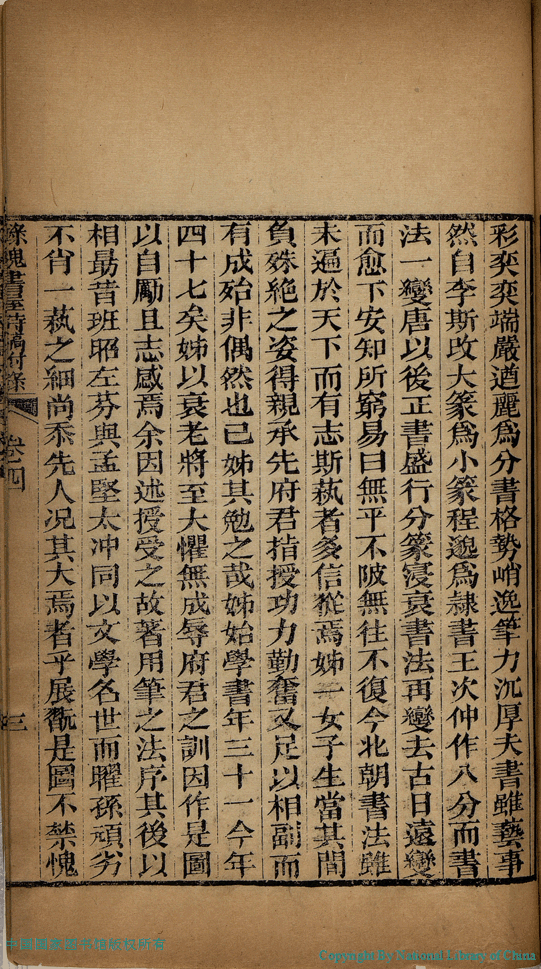 彩奕奕端嚴遒麗爲分書格勢峭逸筆力沉厚夫書雖藝事
然自李斯改大篆爲小篆程邈爲隸書王次仲作八分而書
法一變唐以後正書盛行分篆寖衰書法再變去古日遠變
而愈下安知所窮易曰無平不陂無往不復今北朝書法雖
未遍於天下而有志斯藝者多信從焉姊一女子生當其間
負殊絶之姿得親承先府君指授功力勤奮又足以相副而
有成殆非偶然也已姊其勉之哉姊始學書年三十一今年
四十七矣姊以衰老將至大懼無成辱府君之訓因作是圖
以自勵且志感焉余因述授受之故著用筆之法序其後以
相勗昔班昭左芬與孟堅太冲同以文學名世而曜孫頑劣
不肖一藝之細尚忝先人况其大焉者乎展翫是圖不禁愧
餘槐書室詩稿付錄 卷四 三
中國國家圖書館版权所有
Copyright By National Library of China